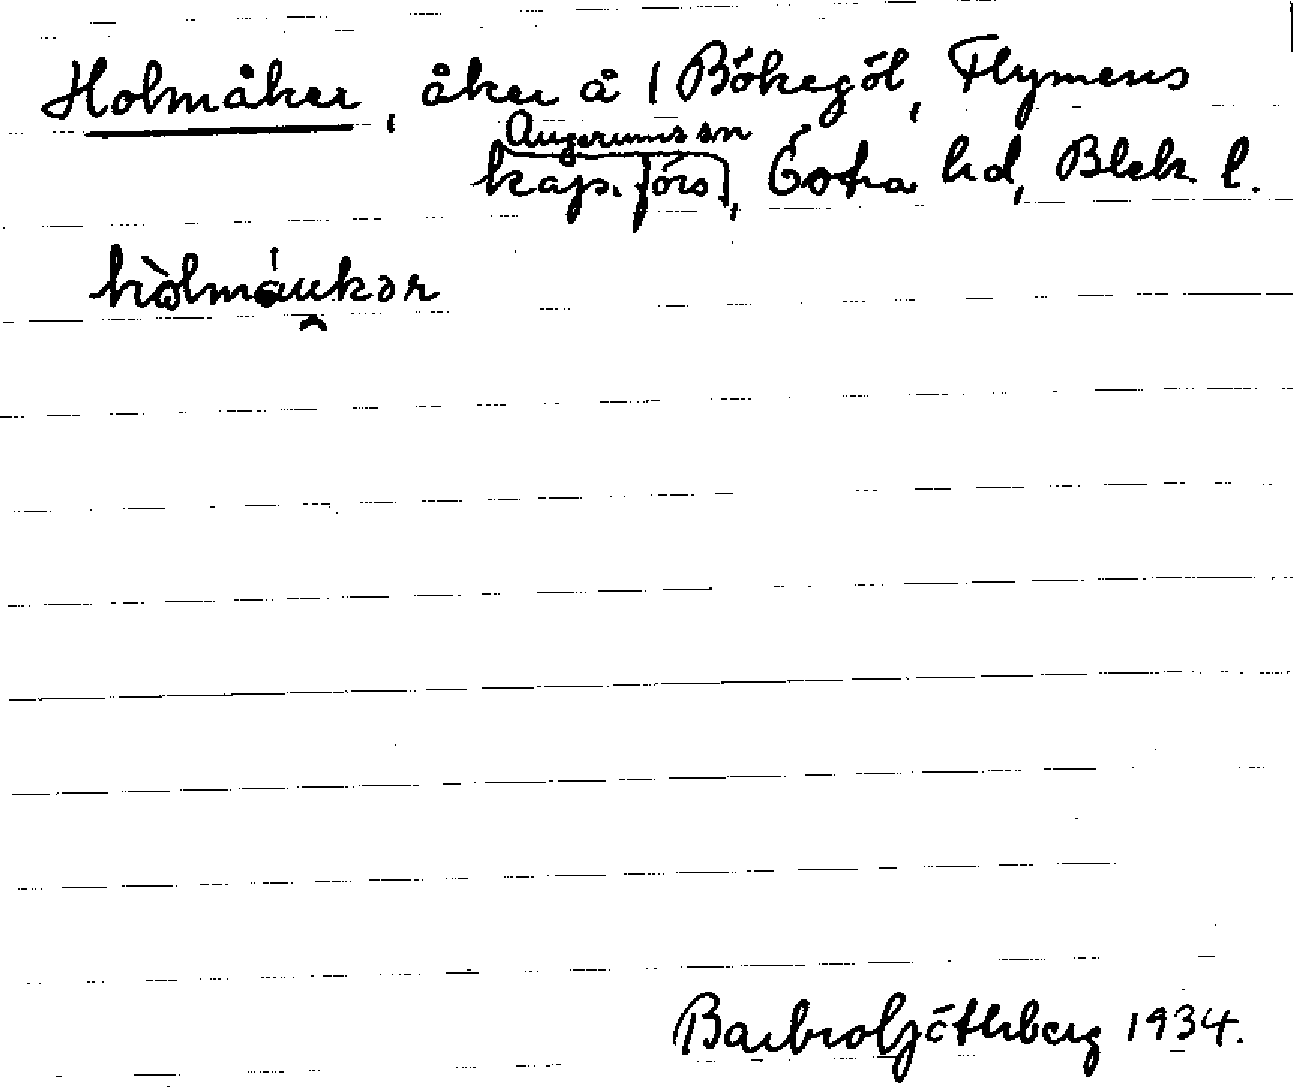 Holmåker, åker å 1 Bökegöl, Flymens
Augerums sn
kap. förs, Östra hd, Blek. l.
hòlmáukər
Barbro Götherberg 1934.